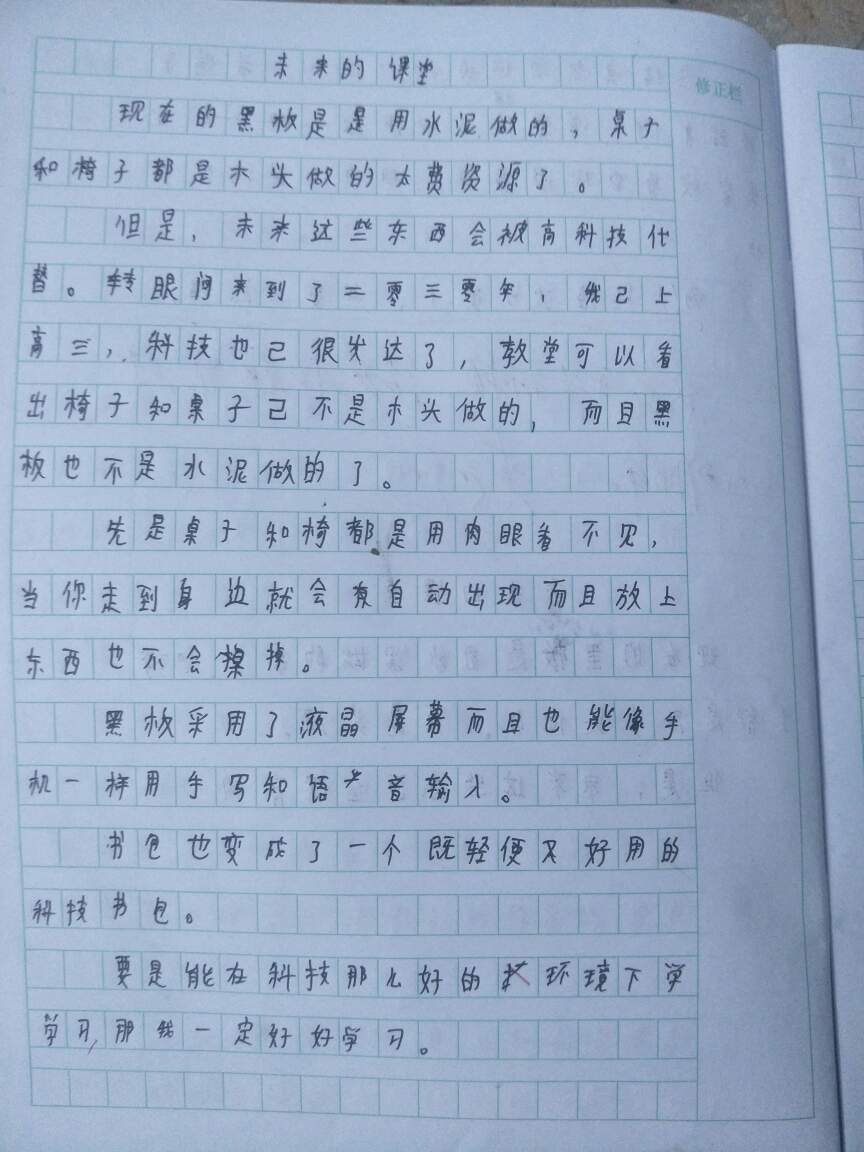 未来的课堂
修正栏
现在的黑板是是用水泥做的，桌子
和椅子都是木头做的太费资源了。
但是，未来这些东西会被高科技代
替。转眼间来到了二零三零年，我已上
高三，科技也已很发达了，教堂可以看
出椅子和桌子已不是木头做的，而且黑
板也不是水泥做的了。
先是桌子和椅都是用肉眼看不见，
当你走到身边就会有自动出现而且放上
东西也不会掉。
黑板采用了液晶屏幕而且也能像手
机一样用手写和语音输入。
书包也变成了一个既轻便又好用的
科技书包。
要是能在科技那么好的环境下学
学习，那我一定好好学习。